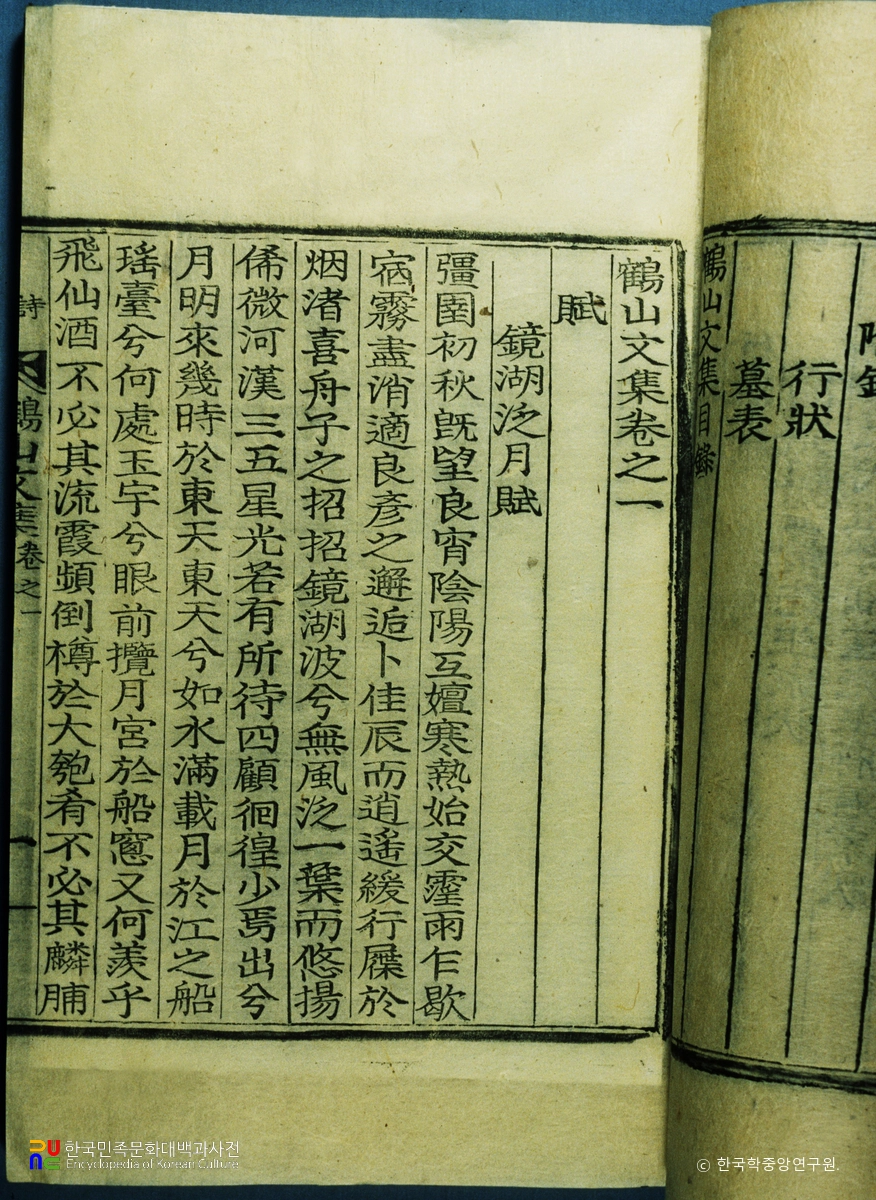 附錄
行狀
墓表
鶴山文集目錄
鶴山文集卷之一
賦
鏡湖泛月賦
彊圉初秋旣望良宵陰陽互嬗寒熱始交霪雨乍歇
宿霧盡消適良彥之邂逅卜佳辰而逍遙緩行屧於
烟渚喜舟子之招招鏡湖波兮無風泛一葉而悠揚
俙微河漢三五星光若有所待四顧徊徨少焉出兮
月明來幾時於東天東天兮如水滿載月於江之船
瑤臺兮何處玉宇兮眼前攬月宮於船窓又何羨乎
飛仙酒不必其流霞頻倒樽於大匏肴不必其麟脯
詩 鶴山文集卷之一 一
한국민족문화대백과사전
Encyclopedia of Korean Culture
ⓒ 한국학중앙연구원